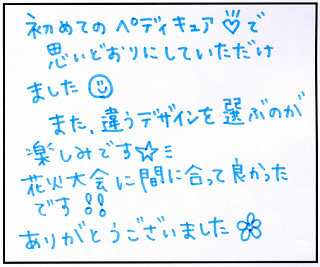 初めてのペディキュア♡で
思いどおりにしていただけ
ました☺
また、違うデザインを選ぶのが
楽しみです☆ミ
花火大会に間に合って良かった
です!!
ありがとうございました